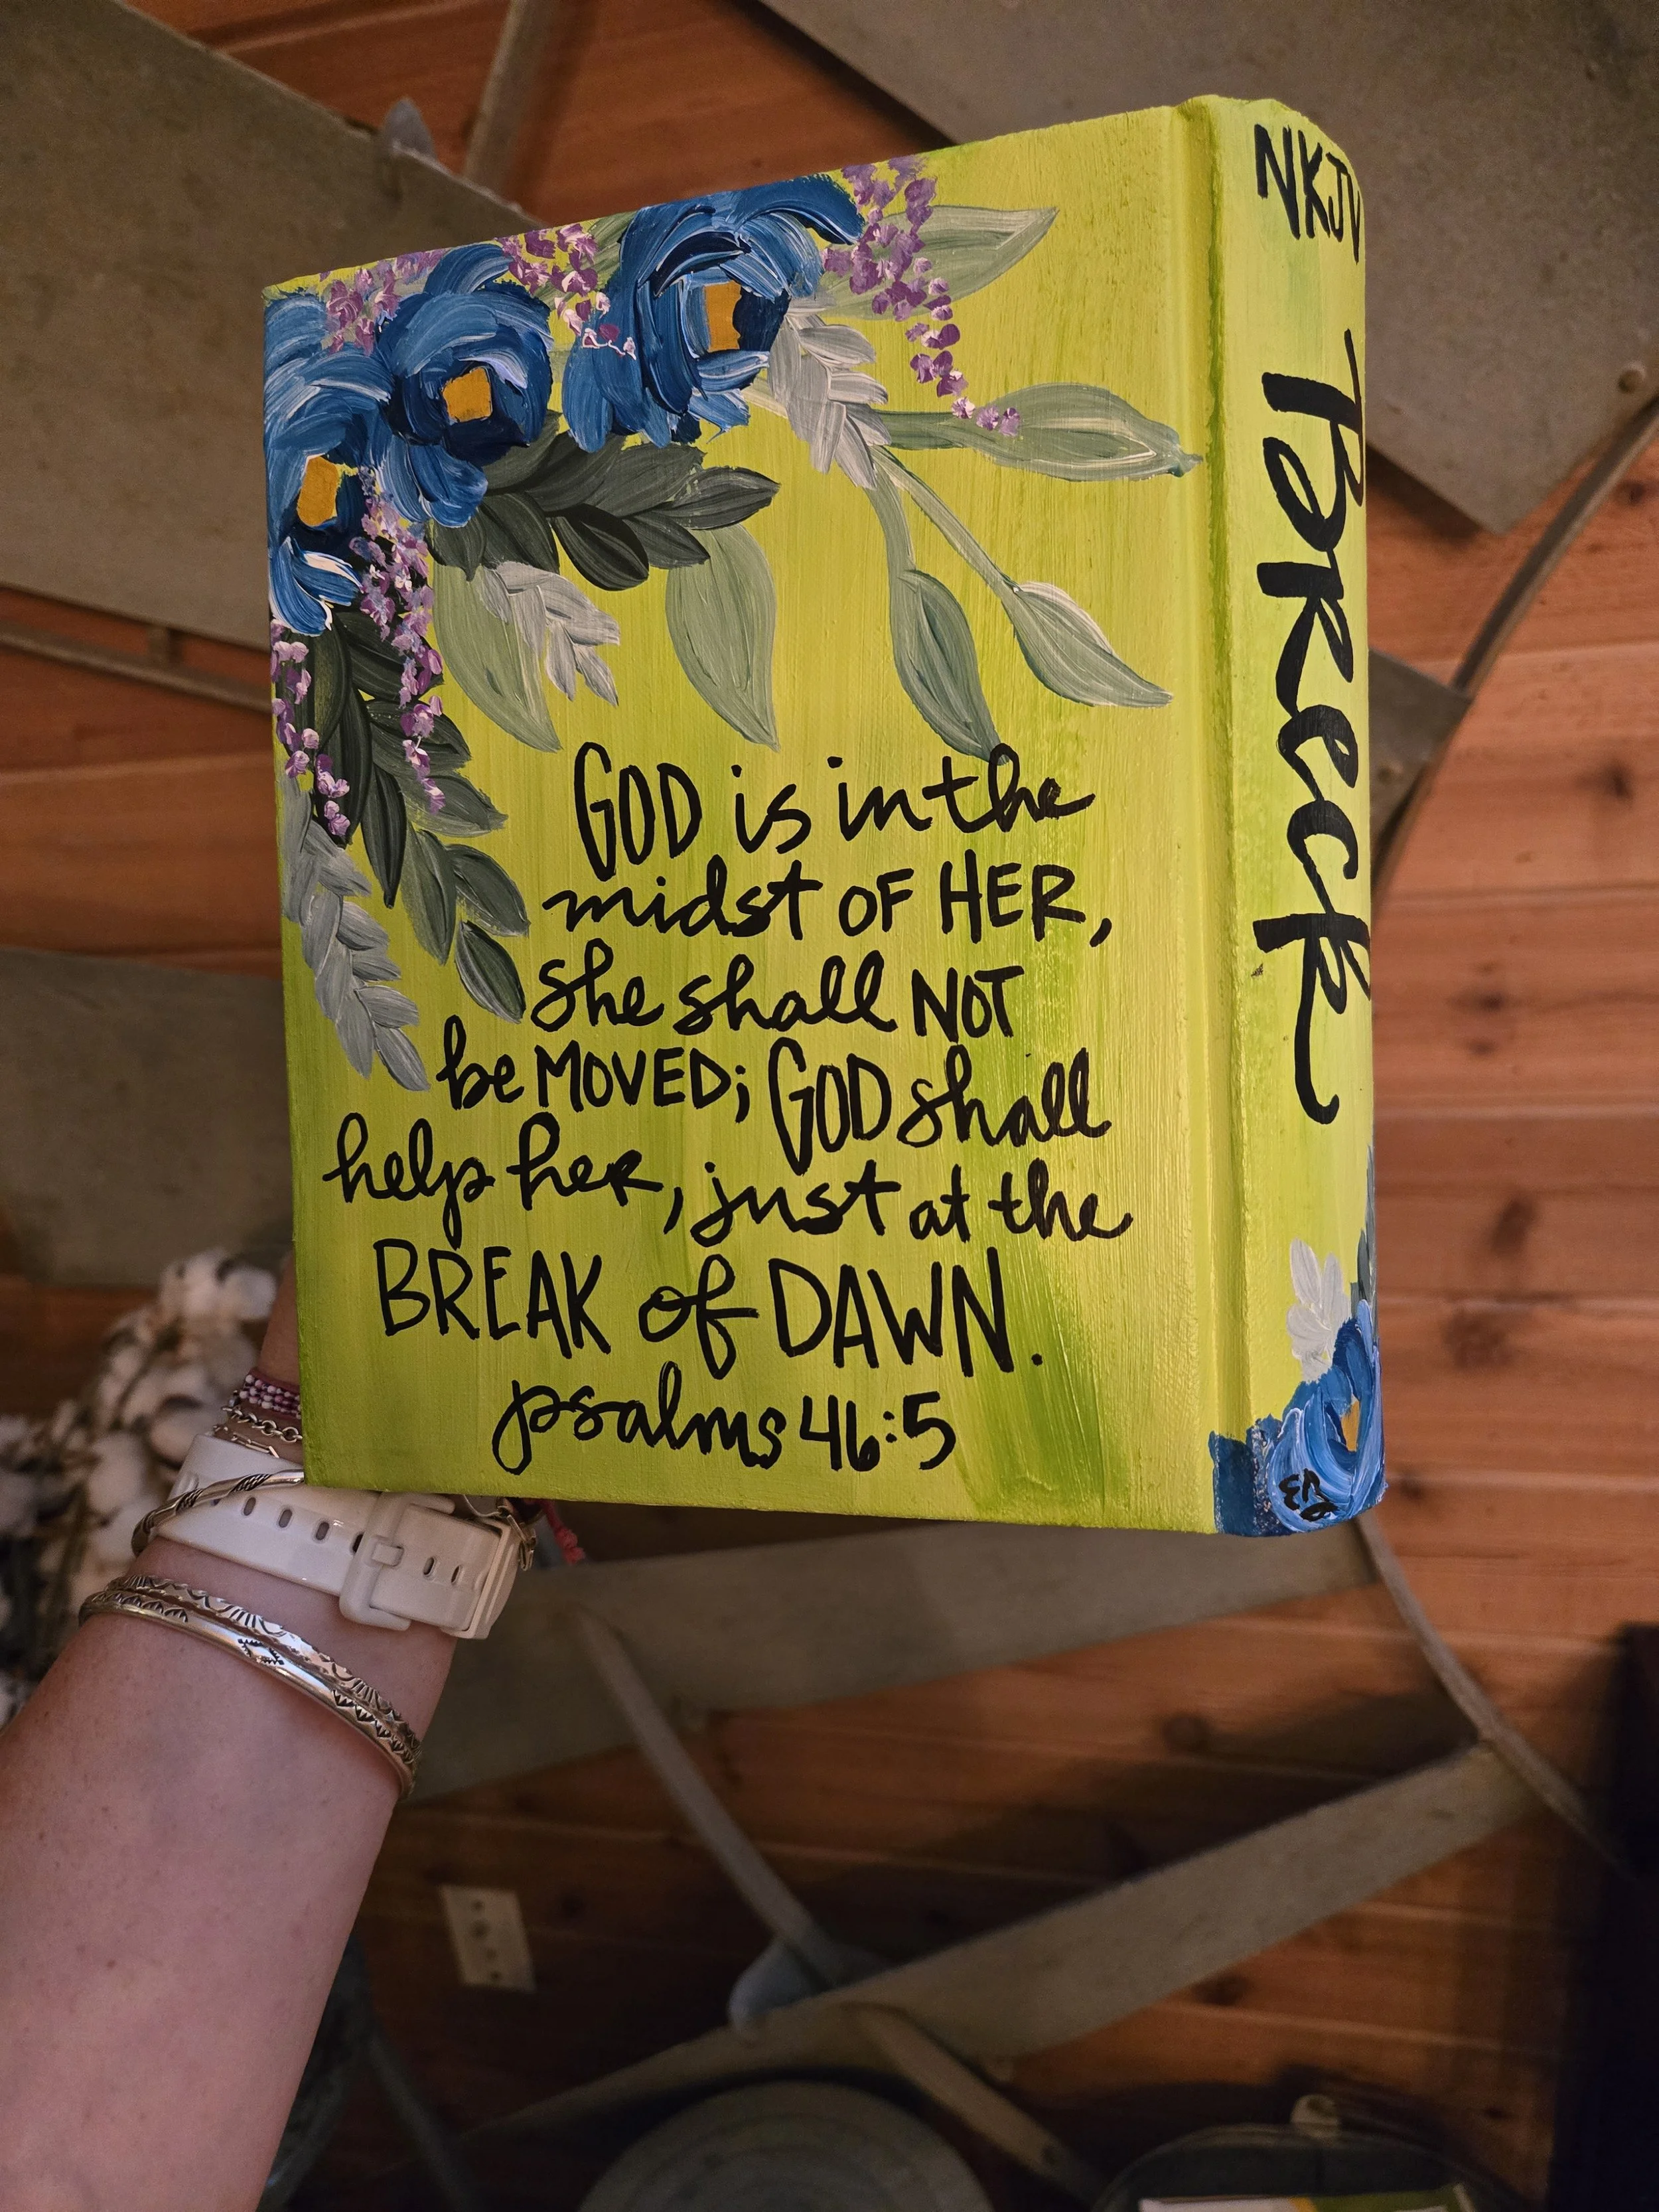 GOD is in the
midst OF HER,
she shall NOT
be MOVED; GOD shall
help her, just at the
BREAK of DAWN.
psalms 46:5
NKJV
BRECK